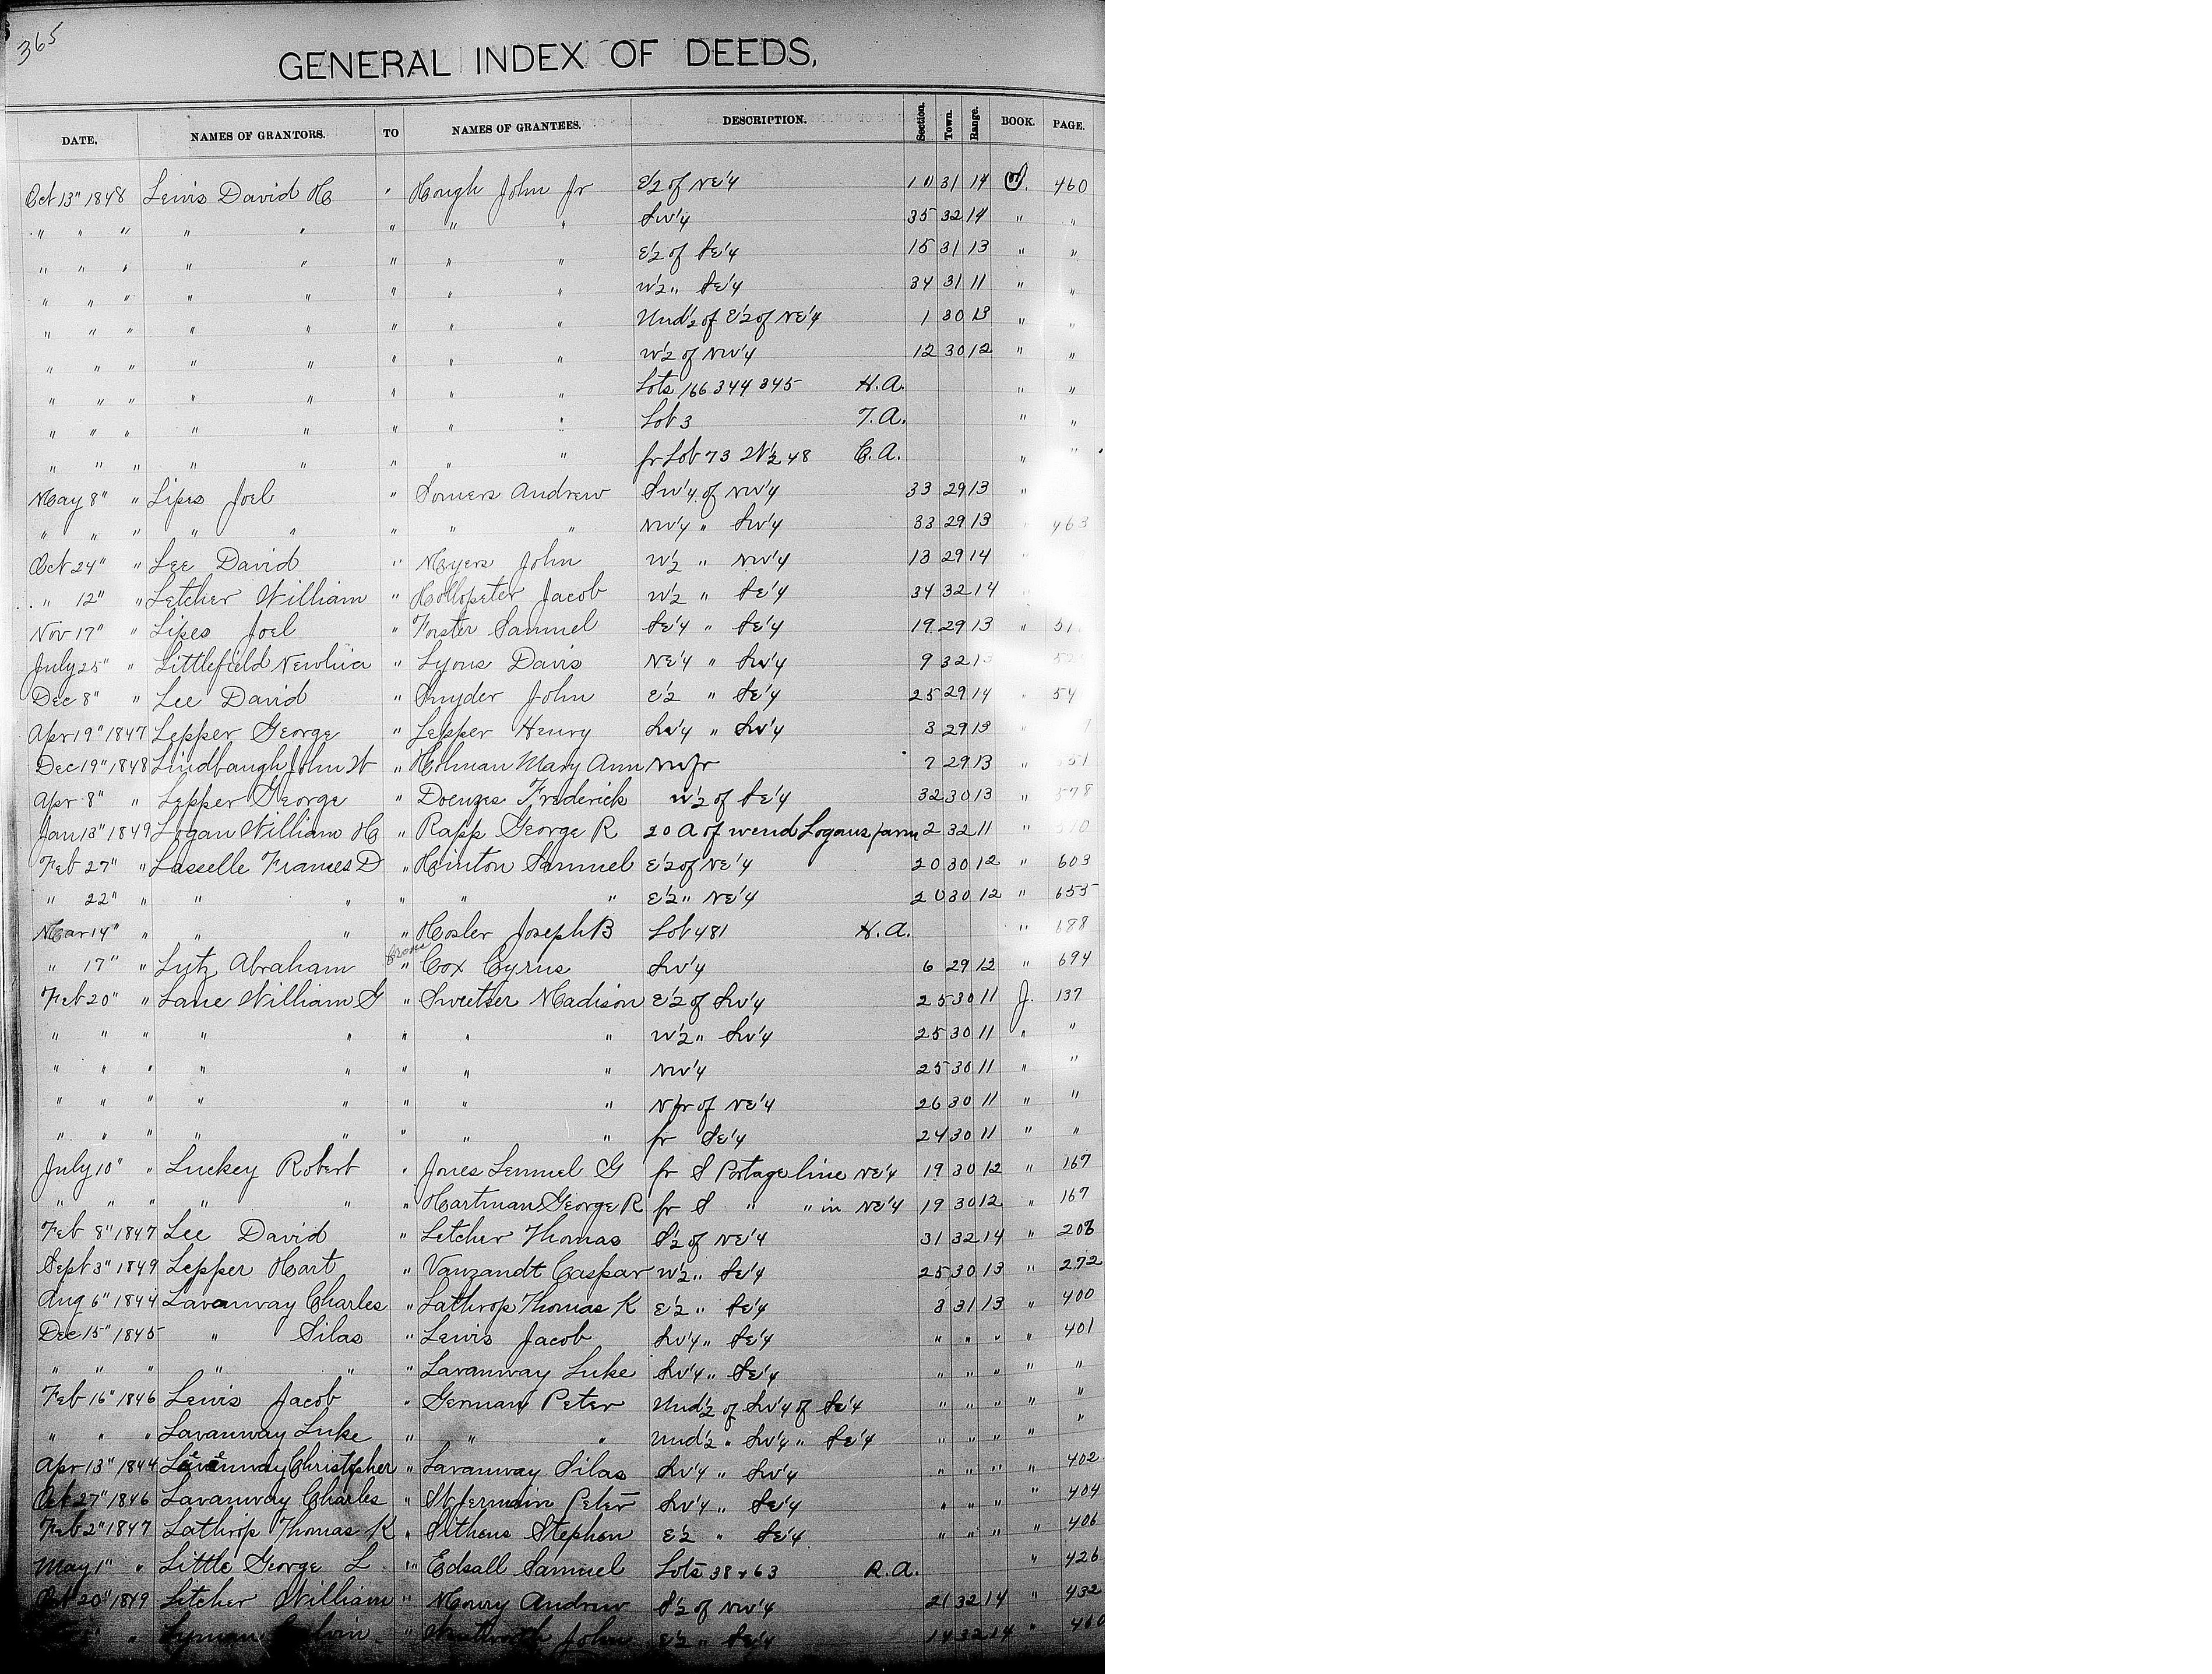 365
GENERAL INDEX OF DEEDS,
DATE, NAMES OF GRANTORS. TO NAMES OF GRANTEES. DESCRIPTION. Section. Town. Range. BOOK. PAGE.
Oct 13" 1848 Lewis David H " Hough John Jr E 1/2 of NE 1/4 10 31 14 460
" " " " " " " " SW 1/4 35 32 14 " "
" " " " " " " " E 1/2 of SE 1/4 15 31 13 " "
" " " " " " " " W 1/2 " SE 1/4 34 31 11 " "
" " " " " " " " Und 1/2 of E 1/2 of NE 1/4 1 30 13 " "
" " " " " " " " W 1/2 of NW 1/4 12 30 12 " "
" " " " " " " " Lots 166 344 345 H.A. " "
" " " " " " " " Lot 3 T.A. " "
" " " " " " " " pr Lot 73 W 1/2 48 C.A. " "
May 8" " Lipes Joel " Somers Andrew SW 1/4 of NW 1/4 33 29 13 "
" " " " " " " " NW 1/4 " SW 1/4 33 29 13 463
Oct 24" " Lee David " Myers John W 1/2 " NW 1/4 13 29 14
" 12" " Letcher William " Hollopeter Jacob W 1/2 " SE 1/4 34 32 14
Nov 17" " Lipes Joel " Forster Samuel SE 1/4 " SE 1/4 19 29 13 "
July 25" " Littlefield " Lyons Davis NE 1/4 " SW 1/4 9 32 13
Dec 8" " Lee David " Snyder John E 1/2 " SE 1/4 25 29 14 "
Apr 19" 1847 Lepper George " Lepper Henry SW 1/4 " SW 1/4 3 29 13 "
Dec 19" 1848 Lindbaugh John W " Holman Mary Ann NW fr 7 29 13 "
Apr 8" " Lepper George " Doenges Frederick W 1/2 of SE 1/4 32 30 13 " 578
Jan 13" 1849 Logan William H " Rapp George R 20 A of W end Logans farm 2 32 11 "
Feb 27" " Lasselle Frances D " Hinton Samuel E 1/2 of NE 1/4 20 30 12 " 603
" 22" " " " " " " E 1/2 " NE 1/4 20 30 12 " 655
Mar 14" " " " " Hosler Joseph B Lot 481 H.A. " 688
" 17" " Lutz Abraham from " Cox Cyrus SW 1/4 6 29 12 " 694
Feb 20" " Lane William G " Sweetser Madison E 1/2 of SW 1/4 25 30 11 J. 137
" " " " " " " " W 1/2 " SW 1/4 25 30 11 " "
" " " " " " " " NW 1/4 25 30 11 " "
" " " " " " " " N pr of NE 1/4 26 30 11 " "
" " " " " " " " pr SE 1/4 24 30 11 " "
July 10" " Luckey Robert " Jones Lemuel G pr S Portage line NE 1/4 19 30 12 " 167
" " " " " " Hartman George R pr S " " in NE 1/4 19 30 12 " 167
Feb 8" 1847 Lee David " Letcher Thomas S 1/2 of NE 1/4 31 32 14 " 208
Sept 3" 1849 Lepper Hart " Vanzandt Caspar W 1/2 " SE 1/4 25 30 13 " 272
Aug 6" 1844 Lavanway Charles " Lathrop Thomas K E 1/2 " SE 1/4 3 31 13 " 400
Dec 15" 1845 " Silas " Lewis Jacob SW 1/4 " SE 1/4 " " " " 401
" " " " " " Lavanway Luke SW 1/4 " SE 1/4 " " " " "
Feb 16" 1846 Lewis Jacob " German Peter Und 1/2 of SW 1/4 of SE 1/4 " " " " "
" " " Lavanway Luke " " " Und 1/2 " SW 1/4 " SE 1/4 " " " " "
Apr 13" 1844 Lavanway Christopher " Lavanway Silas SW 1/4 " SW 1/4 " " " " 402
Oct 27" 1846 Lavanway Charles " St Jermain Peter SW 1/4 " SE 1/4 " " " " 404
Feb 2" 1847 Lathrop Thomas K " Sithens Stephen E 1/2 " SE 1/4 " " " " 406
May 1" " Little George L " Edsall Samuel Lots 38 + 63 R.A. " 426
Oct 20" 1849 Letcher William " Mowry Andrew S 1/2 of NW 1/4 21 32 14 " 432
" Lyman " John E 1/2 " SE 1/4 14 32 14 " 460